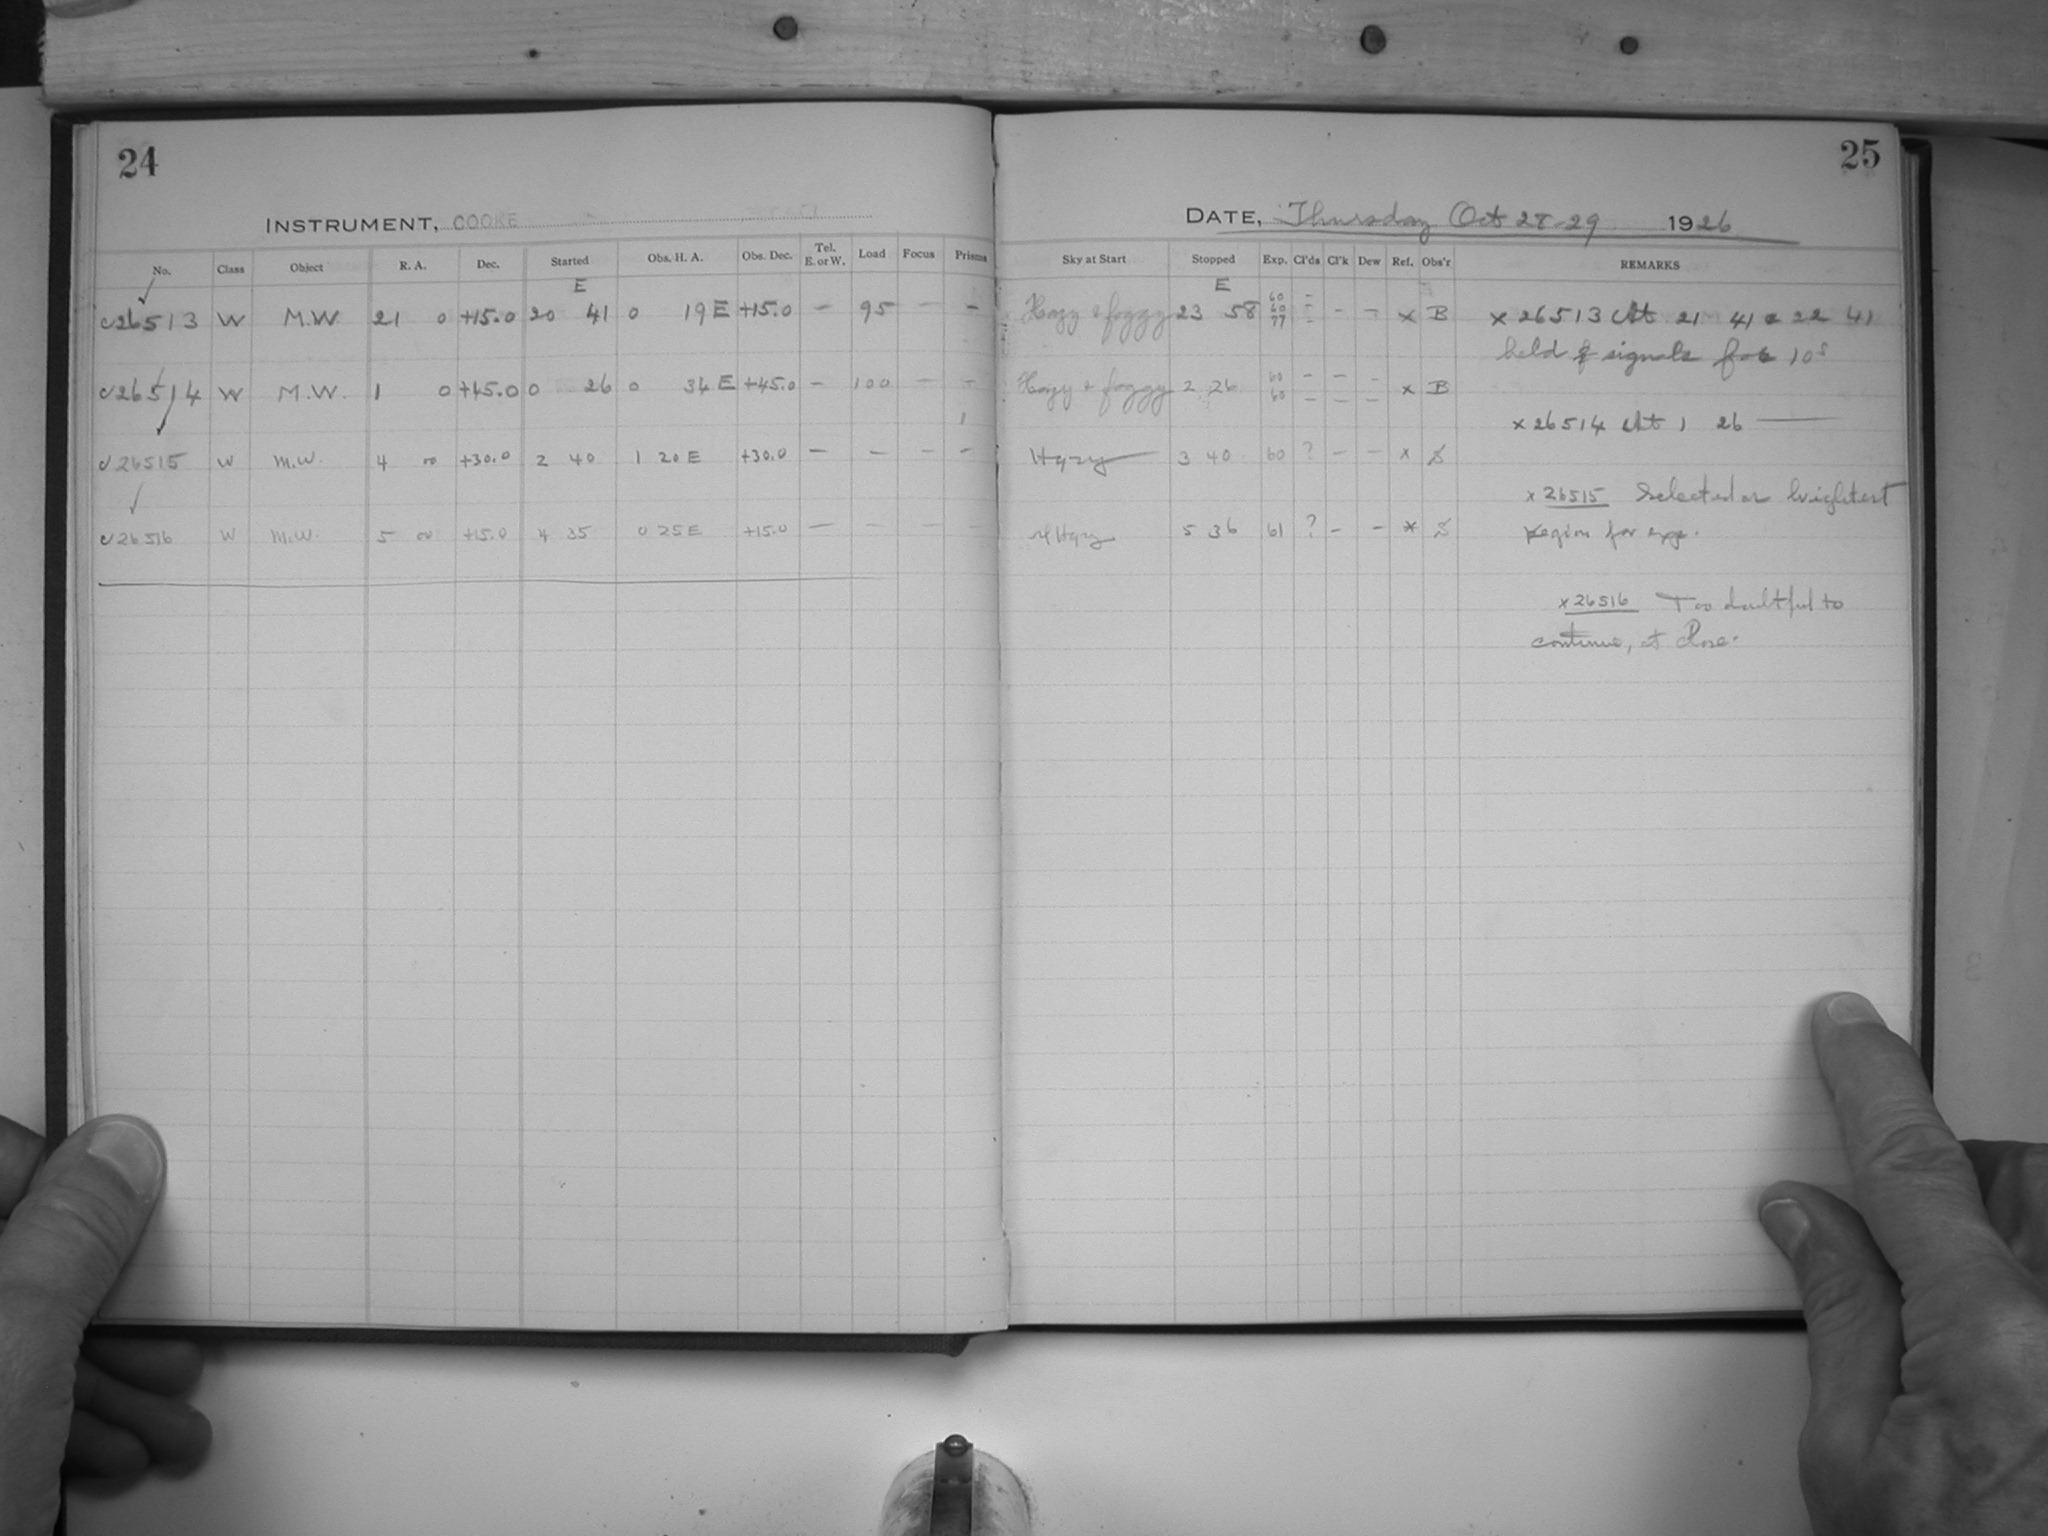 24
INSTRUMENT, COOKE
No. Class Object R. A. Dec. Started Obs. H. A. Obs. Dec. Tel. E. or W. Load Focus Prisms
E
c26513 W M.W. 21 0 +15.0 20 41 0 19 E +15.0 – 95 – –
c26514 W M.W. 1 0 +45.0 0 26 0 34 E +45.0 – 100 – –
c26515 W M.W. 4 00 +30.0 2 40 1 20 E +30.0 – – – –
c26516 W M.W. 5 00 +15.0 4 35 0 25 E +15.0 – – – –
25
DATE, Thursday Oct 28-29 1926
Sky at Start Stopped Exp. Cl'ds Cl'k Dew Ref. Obs'r REMARKS
E
Hazy & foggy 23 58 60 60 77 – – – – – x B x 26513 At 21 41 & 22 41
held signals for 10s
Hazy & foggy 2 26 60 60 – – – – – – x B
x 26514 At 1 26 ——
Hazy 3 40 60 ? – – x S
x 26515 Selected as brightest
Hazy 5 36 61 ? – – * S region for exp.
x 26516 Too doubtful to
continue, at close.